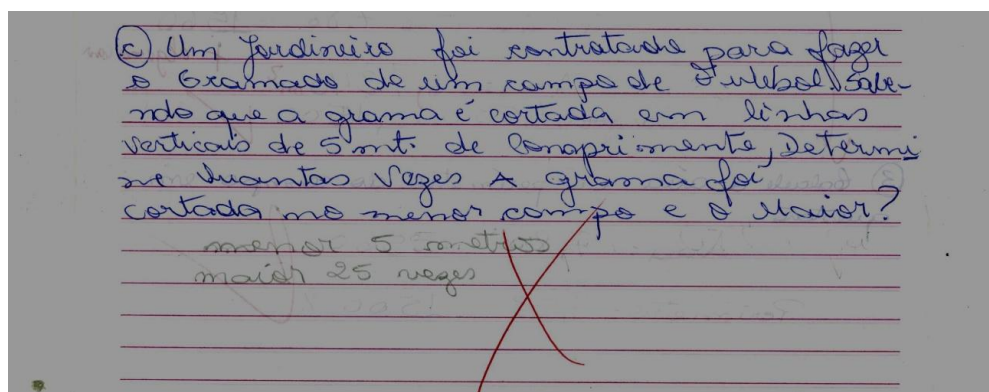 c) Um Jardineiro foi contratado para fazer
o Gramado de um campo de Futebol. Sabe-
ndo que a grama é cortada em linhas
verticais de 5 mt. de Comprimento, Determi
ne Quantas Vezes A grama foi
cortada no menor campo e o Maior?
menor 5 metros
maior 25 vezes